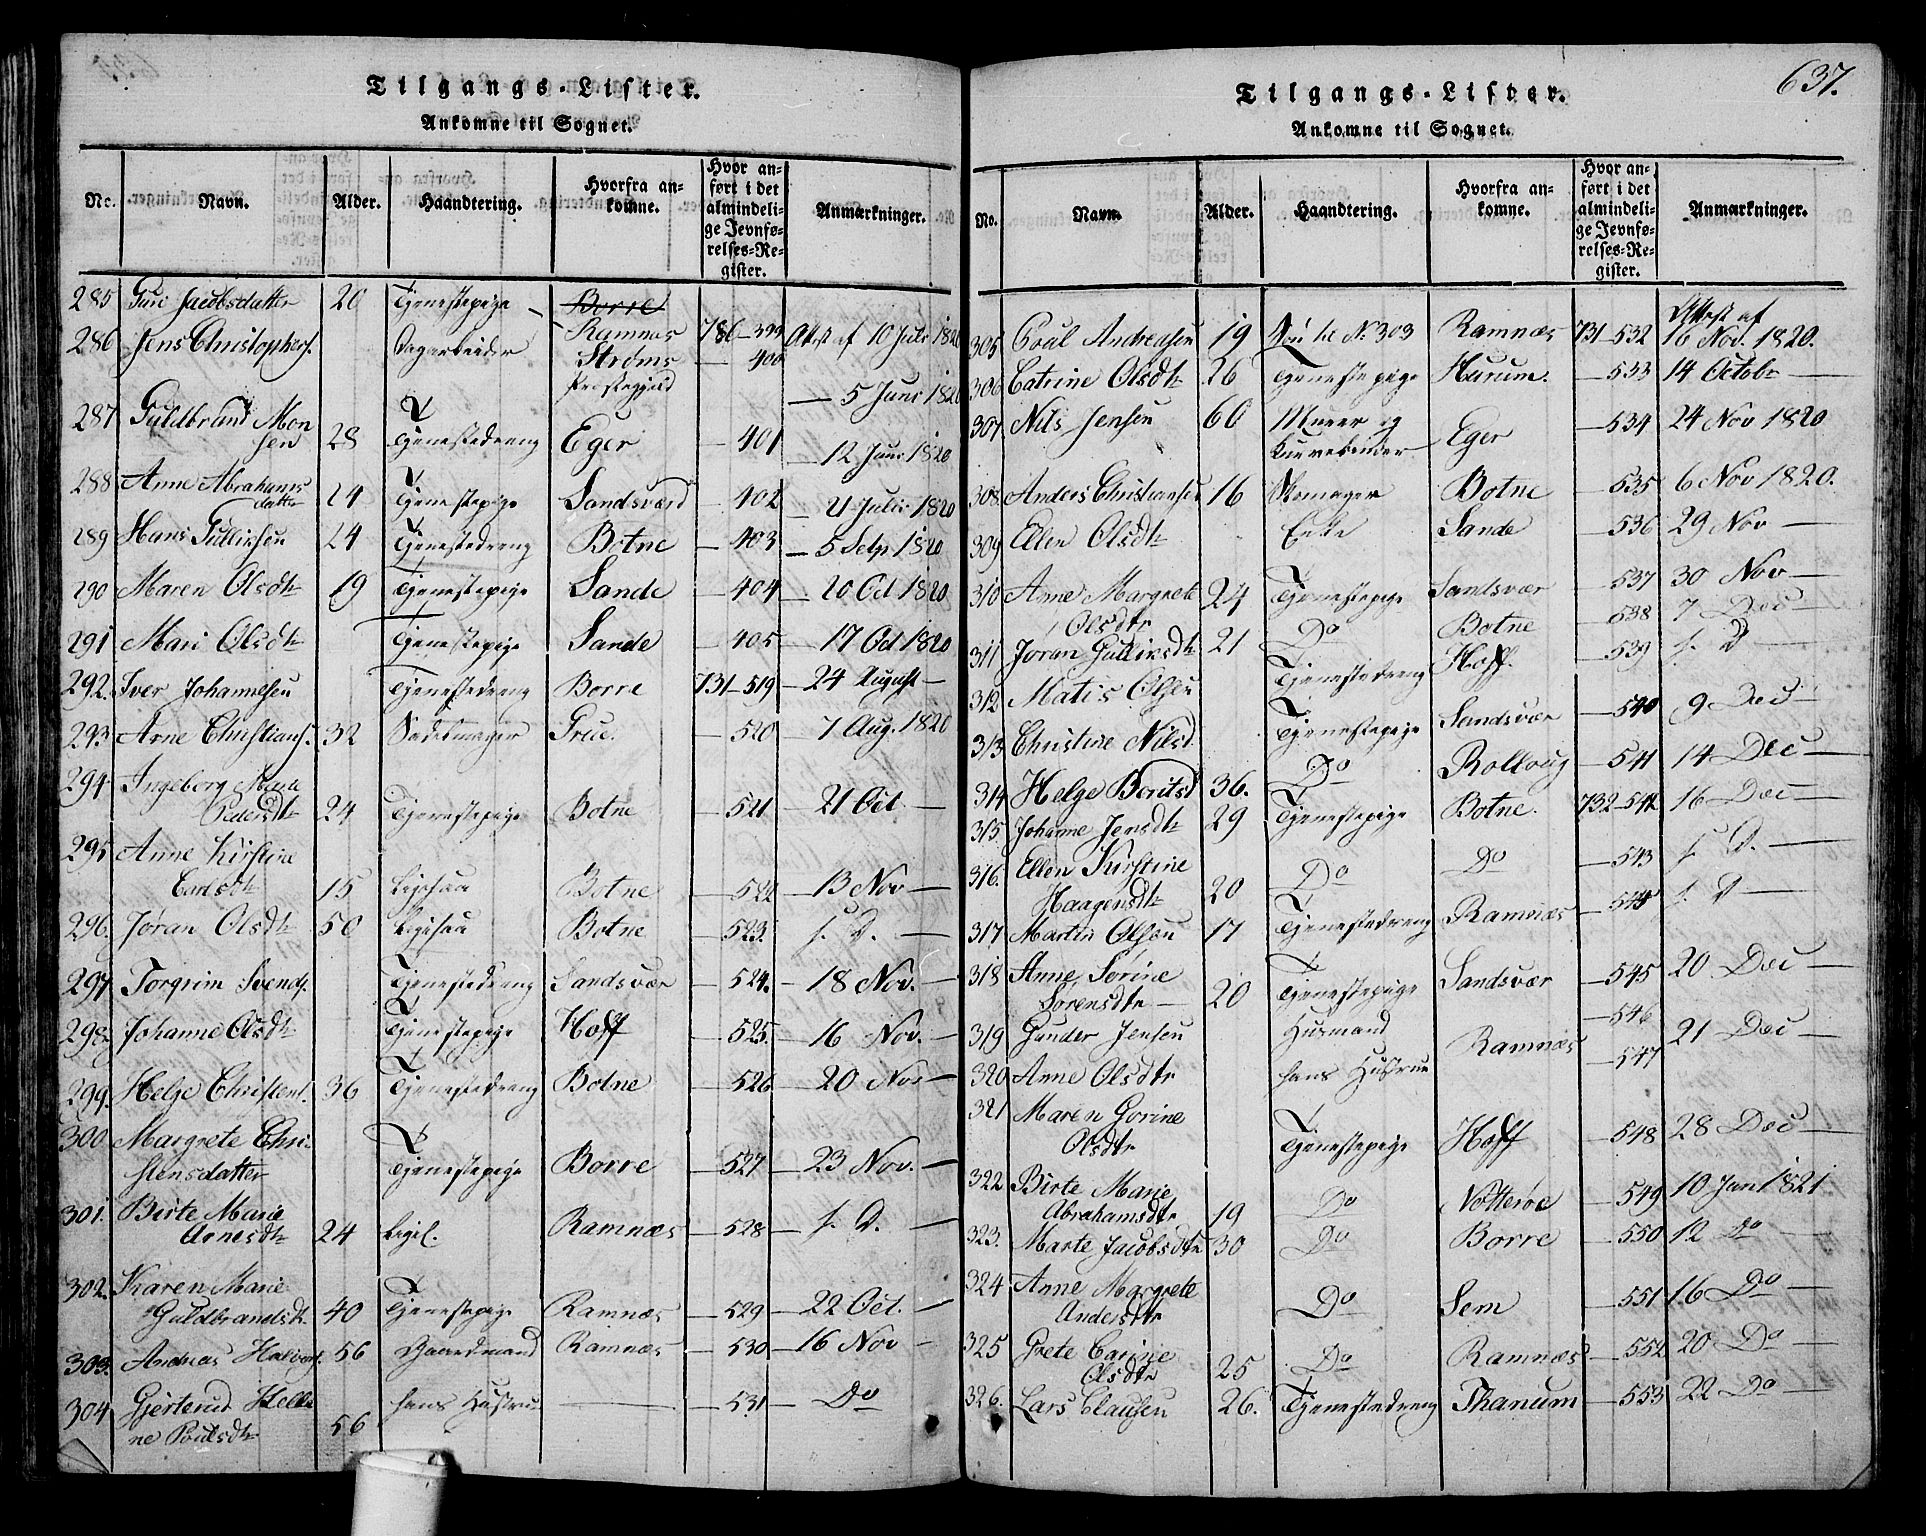 Tilgangs-Lister.
Ankomne til Sognet.
No. Navn. Alder. Haandtering. Hvorfra ankomne. Hvor anført i det almindelige Jevnførelses-Register. Anmærkninger.
285 Guri Jacobsdatter 20 Tjenestepige Borre
Ramnæs 786-399 Attest af 10 Juli 1820
286 Jens Christophers. Dagarbeider Strøms Præstegjeld — 400 — 5 Juni 1820
287 Guldbrand Mon
sen 28 Tjenestedreng Eger — 401 — 12 Juni 1820
288 Anne Abrahams
datter 24 Tjenestepige Sandsværd — 402 — 21 Julii 1820
289 Hans Gulliksen 24 Tjenestedreng Botne — 403 — 5 Sept 1820
290 Maren Olsdtr 19 Tjenestepige Sande — 404 — 20 Oct 1820
291 Mari Olsdtr Tjenestepige Sande — 405 — 17 Oct 1820
292. Iver Johannesen Tjenestedreng Borre 731-519 — 24 August —
293. Arne Christians. 32 Sadelmager Grue. — 520 — 7 Aug. 1820
294. Ingeborg Maria
Pedersdtr 24 Tjenestepige Botne — 521 — 21 Oct —
295 Anne Kirstine
Carlsdtr 15 Ligesaa Botne — 522 — 13 Nov —
296. Jøran Olsdtr 50 Ligesaa Botne — 523. s. D. —
297 Torgrim Svends. Tjenestedreng Sandsvær — 524. — 18 Nov. —
298. Johanne Olsdtr Tjenestepige Hoff — 525. — 16 Nov. —
299. Helge Christens. 36 Tjenestedreng Botne — 526 — 20 Nov —
300. Margrete Chri-
stensdatter Tjenestepige Borre — 527 — 23 Nov. —
301. Birte Marie
Arnesdtr 24 Ligel. Ramnæs — 528 — s. D. —
302. Karen Marie
Guldbrandsdtr 40 Tjenestepige Ramnæs — 529 — 22 Oct. —
303. Andreas Halvors. 56 Gaardmand Ramnæs — 530 — 16 Nov —
304 Gjertrud Helle
ne Poulsdtr 56 hans Hustrue — 531 — Do
637.
Tilgangs-Lister.
Ankomne til Sognet.
No. Navn. Alder. Haandtering. Hvorfra ankomne. Hvor anført i det almindelige Jevnførelses-Register. Anmærkninger.
Attest af
305 Poul Andreasen 19 Søn til No 303 Ramnæs 731-532 16 Nov. 1820.
306 Catrine Olsdtr 26 Tjenestepige Hurum. — 533 14 Octobr —
307. Nils Jensen 60 Murer og
Eger — 534 24 Nov 1820
308. Anders Christiansen 16 Skomager Botne — 535 6 Nov 1820.
309 Ellen Olsdtr Enke Sande — 536 29 Nov —
310 Anne Margrete
Olsdtr 24 Tjenestepige Sandsvær — 537 30 Nov —
311 Jøran Gulliksdtr 21 Do Botne — 538 7 Dec —
312 Matis Olsen Tjenestedreng Hoff. — 539 s. D —
313 Christine Nilsd. Tjenestepige Sandsvær — 540 9 Dec —
314 Helge Boutsd 36. Do Rolloug — 541 14 Dec —
315 Johanne Jensdtr 29 Tjenestepige Botne. 732-542 16 Dec —
316. Ellen Kirstine
Haagensdtr 20 Do Do — 543 s. D. —
317 Martin Olsen 17 Tjenestedreng Ramnæs — 544 s. D —
318 Anne Sørine
Sørensdtr — 20 Tjenestepige Sandsvær — 545 20 Dec —
319 Gunder Jensen Husmand — 546
Ramnæs 21 Dec —
320 Anne Olsdtr hans Hustrue — 547
321 Maren Gorine
Olsdtr Tjenestepige Hoff — 548 28 Dec —
322 Birte Marie
Abrahamsdtr 19 Do Nøtterøe — 549 10 Jan 1821
323. Marte Jacobsdtr 30 Do Borre — 550 12 Do
324 Anne Margrete
Andersdtr Do Sem — 551 16 Do —
325 Grete Carine
Olsdtr 25 Do Ramnæs — 552 20 Do —
326. Lars Clausen 26. Tjenestedreng Thanum — 553 22 Do —